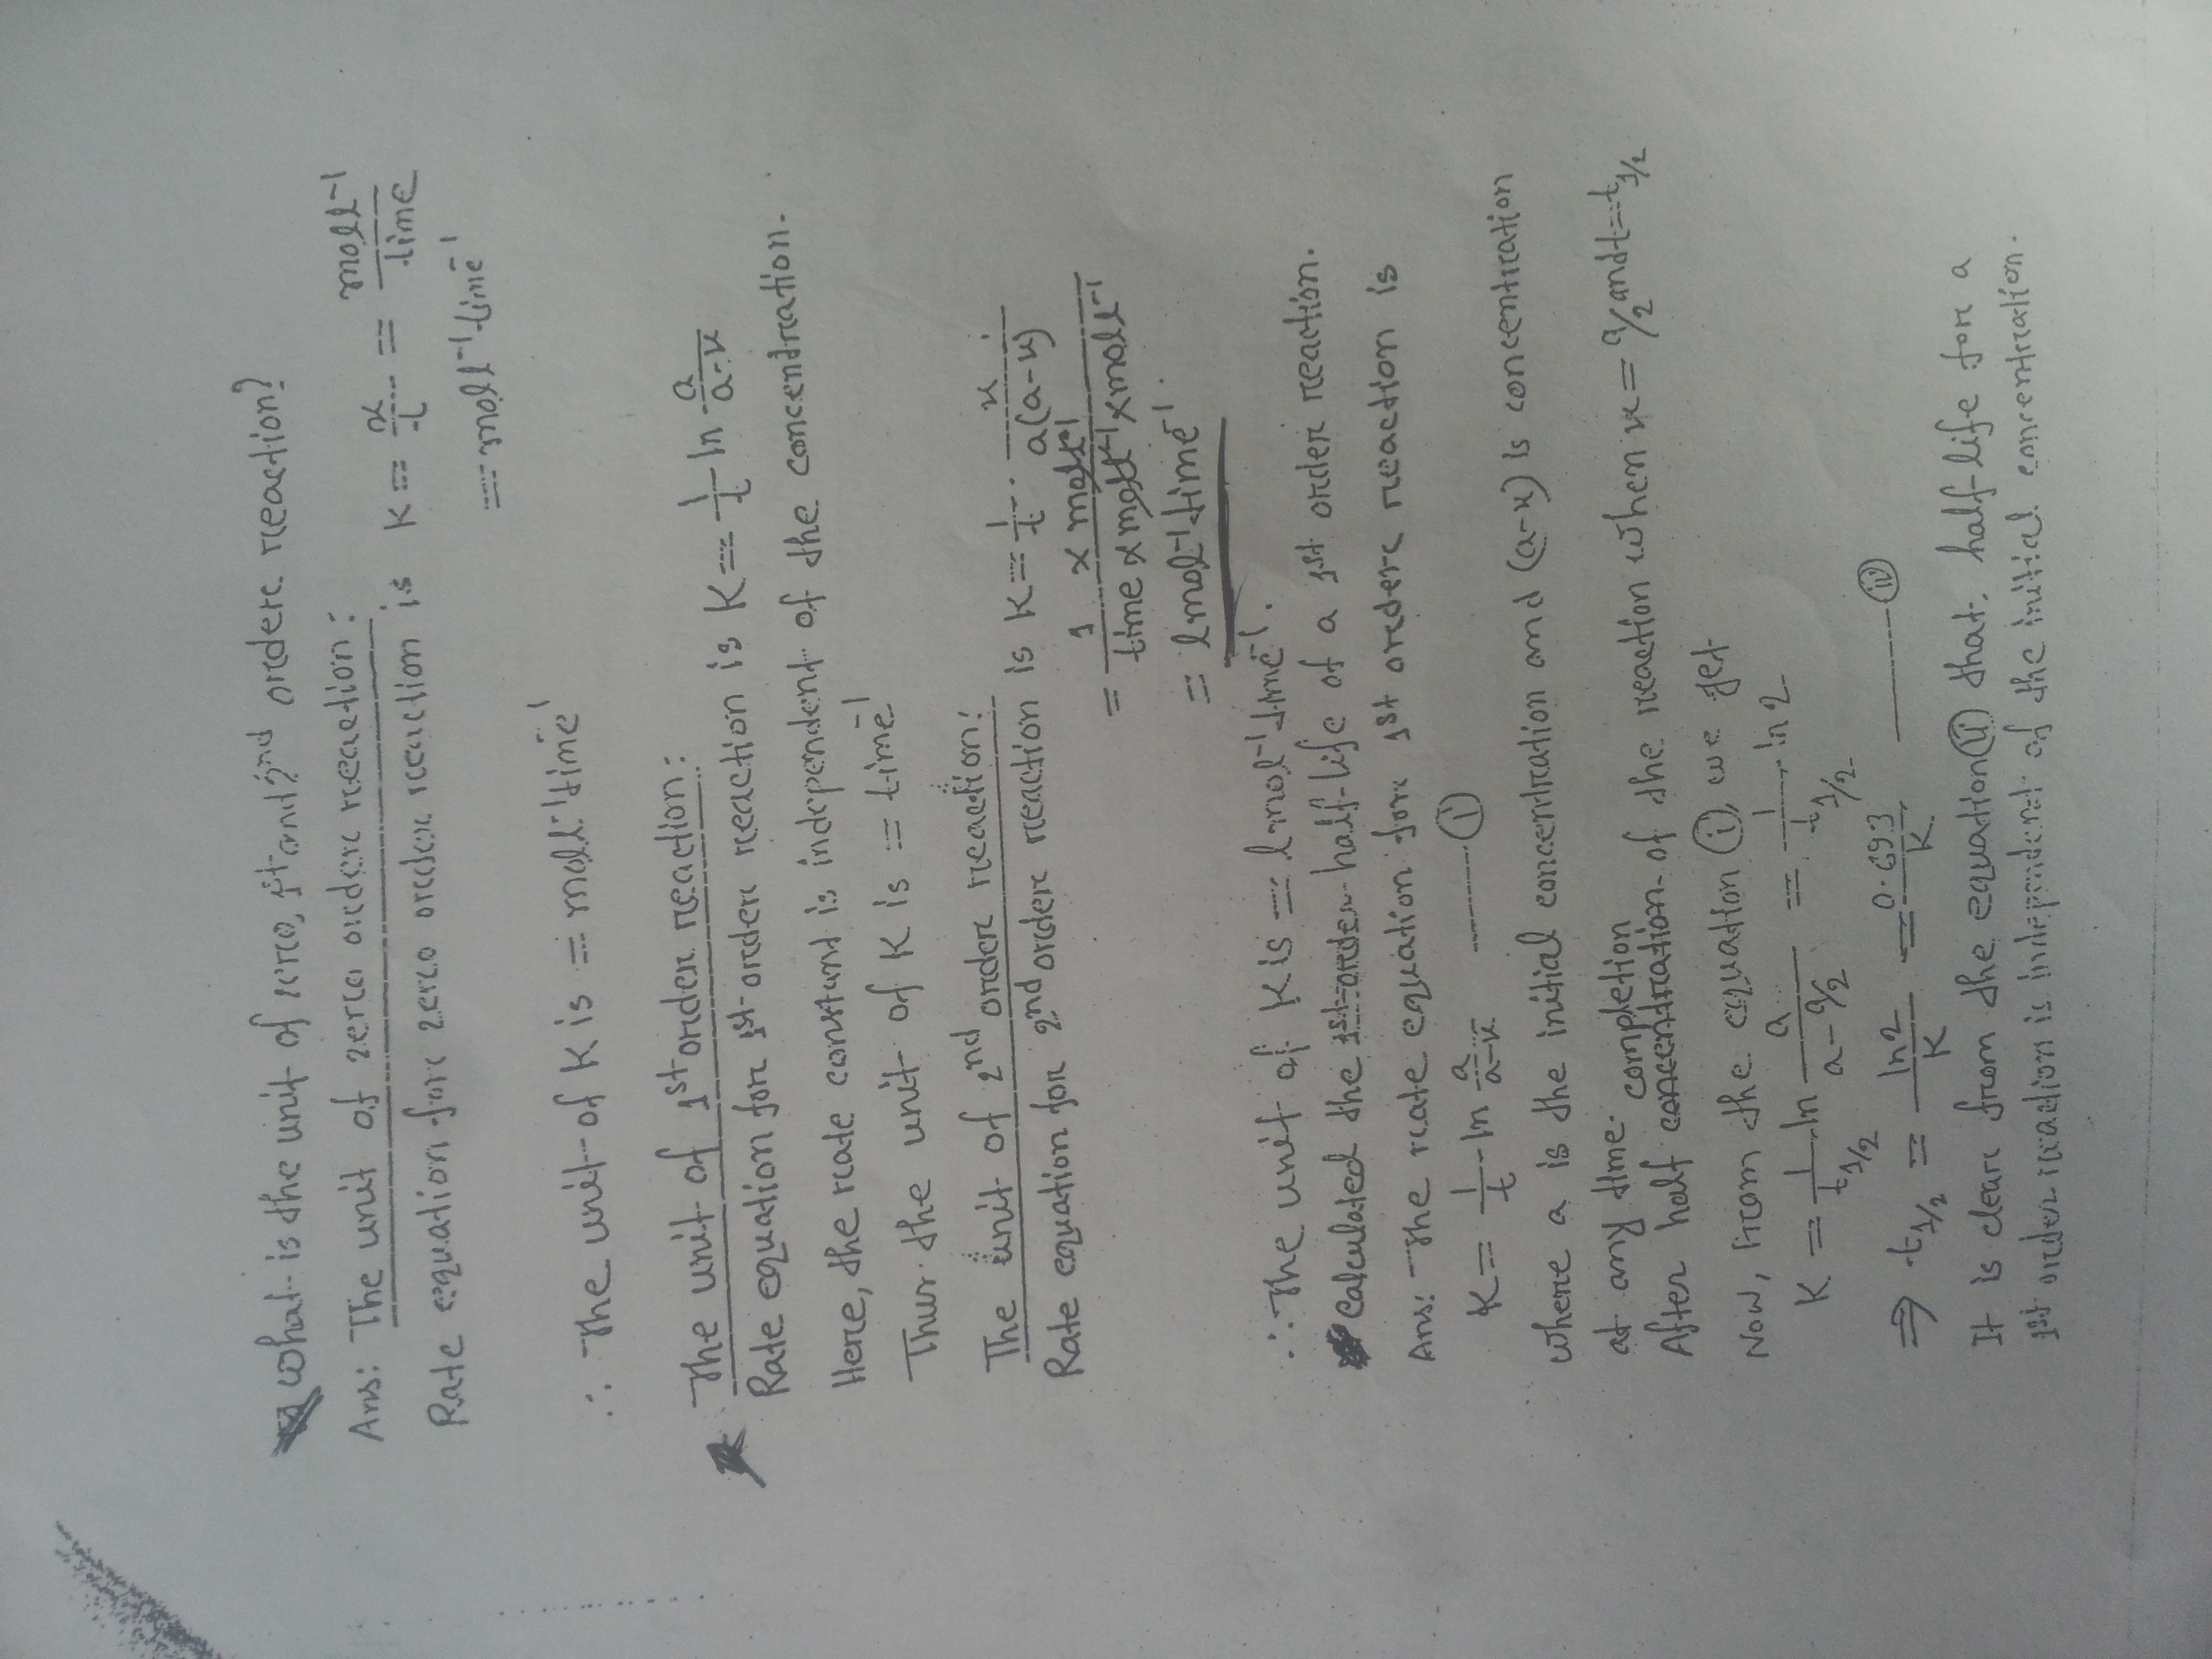 What is the unit of zero, 1st and 2nd order reaction?
Ans: The unit of zero order reaction:
Rate equation for zero order reaction is K = x/t = mol l⁻¹/time
= mol l⁻¹ time⁻¹
∴ The unit of K is = mol l⁻¹ time⁻¹
The unit of 1st order reaction:
Rate equation for 1st order reaction is K = 1/t ln a/a-x
Here, the rate constant is independent of the concentration.
Thus the unit of K is = time⁻¹
The unit of 2nd order reaction:
Rate equation for 2nd order reaction is K = 1/t · x/a(a-x)
= 1 × mol l⁻¹/time × mol l⁻¹ × mol l⁻¹
= l mol⁻¹ time⁻¹
∴ The unit of K is = l mol⁻¹ time⁻¹.
Calculated the 1st order half-life of a 1st order reaction.
Ans: The rate equation for 1st order reaction is
K = 1/t ln a/a-x -------- (i)
where a is the initial concentration and (a-x) is concentration
at any time.
completion
After half concentration of the reaction when x = a/2 and t = t1/2
Now, from the equation (i), we get
K = 1/t1/2 ln a/a-a/2 = 1/t1/2 ln 2
⇒ t1/2 = ln2/K = 0.693/K -------- (ii)
It is clear from the equation (ii) that, half-life for a
1st order reaction is independent of the initial concentration.